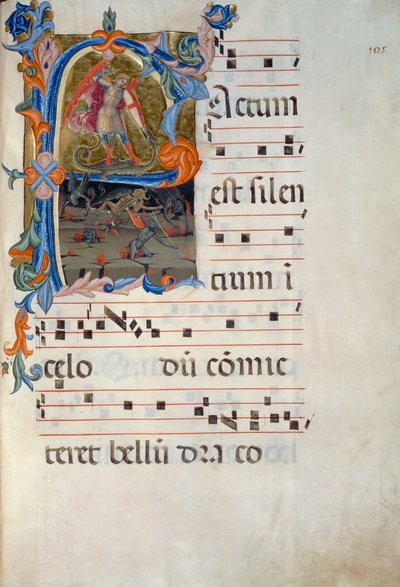 105
FActum
est silen
tium i
celo dũ cõmic
teret bellũ draco